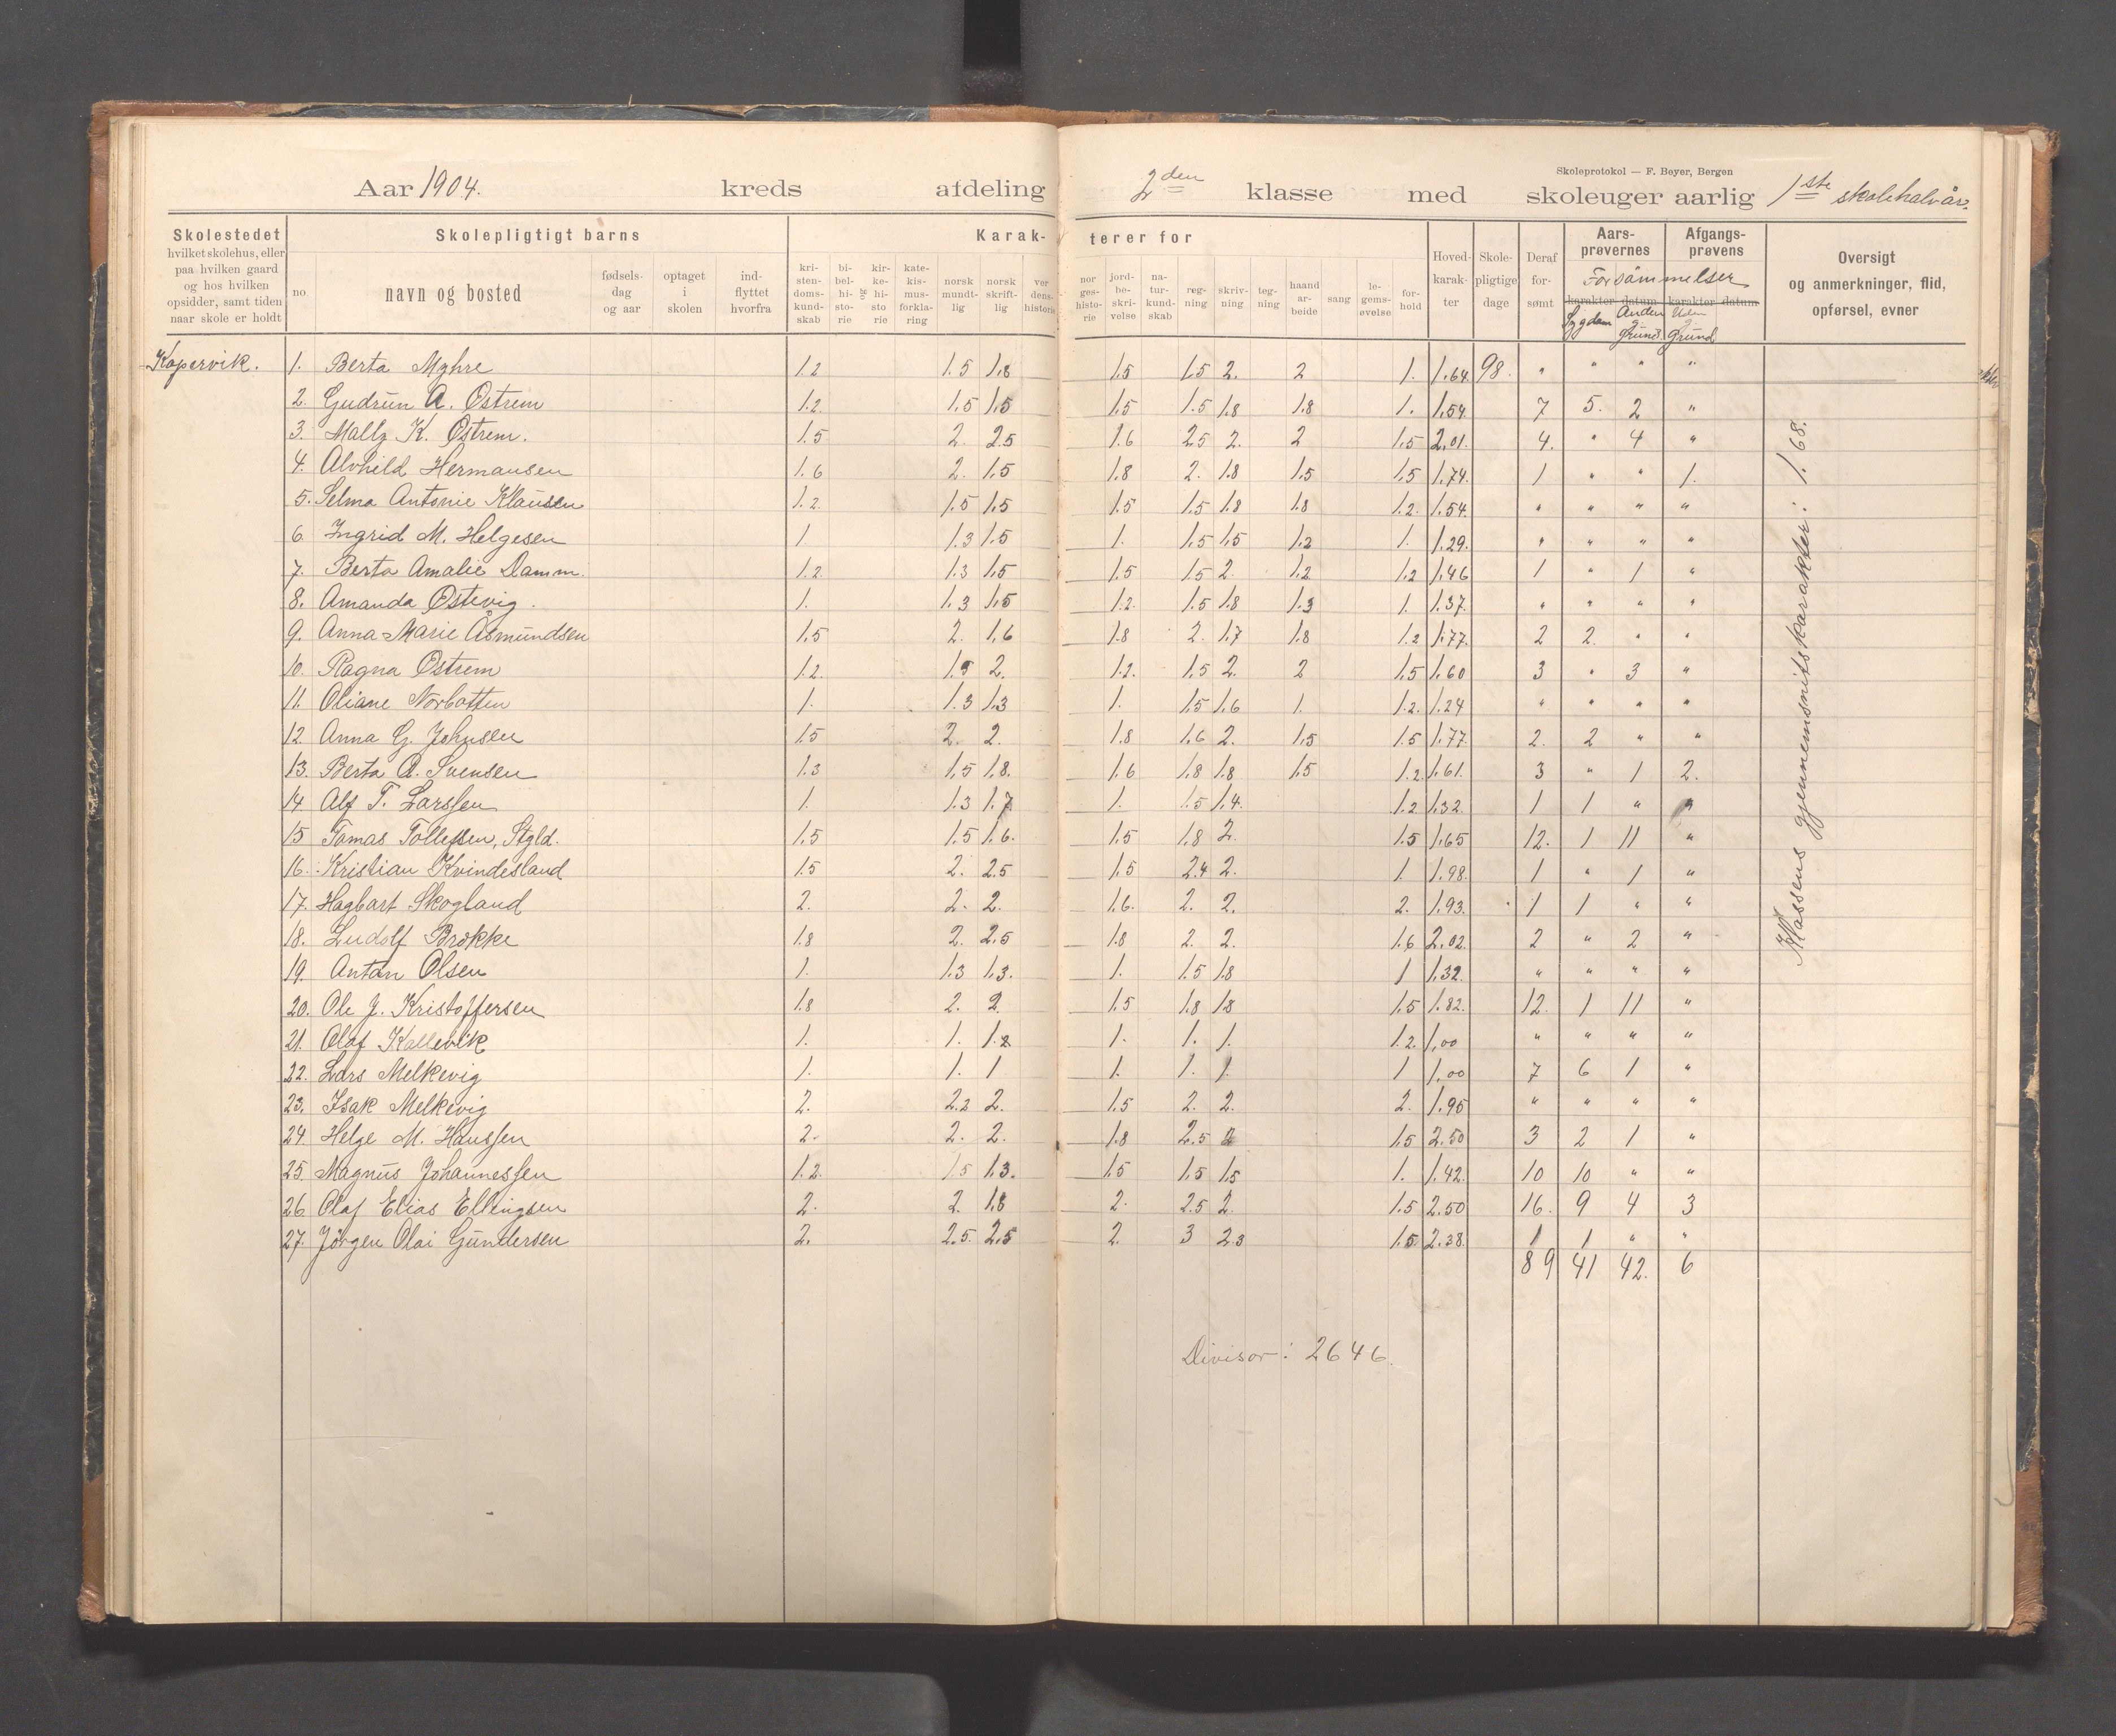 Skoleprotokol — F. Beyer, Bergen
Aar 1904. kreds afdeling 2den klasse med skoleuger aarlig 1ste skolehalvår.
Skolestedet hvilket skolehus, eller paa hvilken gaard og hos hvilken opsidder, samt tiden naar skole er holdt
Skolepligtigt barns
no. navn og bosted fødsels-dag og aar optaget i skolen ind-flyttet hvorfra
Karak- terer for
kri-sten-doms-kund-skab bi-bel-hi-sto-rie og kir-ke-hi-sto rie kate-kis-mus-forkla-ring norsk mundt-lig norsk skrift-lig ver dens-historie nor ges-histo-rie jord-be-skri-velse na-tur-kund-skab reg-ning skriv-ning teg-ning haand ar-beide sang le-gems-øvelse for-hold
Hoved-karak-ter Skole-pligtige dage Deraf for-sømt
Aars-prøvernes Afgangs-prøvens
Forsömmelser
karakter datum karakter datum
Sygdom Anden Grund Uden Grund
Oversigt og anmerkninger, flid, opførsel, evner
Kopervik. 1. Berta Myhre 1.2 1.5 1.8 1.5 1.5 2. 2 1. 1.64 98. " " " "
2. Gudrun A. Östrem 1.2. 1.5 1.5 1.5 1.5 1.8 1.8 1. 1.54. 7 5. 2 "
3. Mally K. Östrem. 1.5 2. 2.5 1.6 2.5 2. 2 1.5 2.01. 4. " 4 "
4. Alvhild Hermansen 1.6 2. 1.5 1.8 2. 1.8 1.5 1.5 1.74. 1 " " 1.
5. Selma Antonie Klausen 1.2. 1.5 1.5 1.5 1.5 1.8 1.8 1.2. 1.54. " " " "
6. Ingrid M. Helgesen 1 1.3 1.5 1. 1.5 1.5 1.2 1. 1.29. " " " "
7. Berta Amalie Damm. 1.2. 1.3 1.5 1.5 1.5 2. 1.2 1.2 1.46 1 " 1 "
8. Amanda Östevig. 1. 1.3 1.5 1.2. 1.5 1.8 1.3 1. 1.37. " " " "
9. Anna Marie Åsmundsen 1.5 2. 1.6 1.8 2. 1.7 1.8 1.2 1.77. 2 2. " "
10. Ragna Östrem 1.2. 1.5 2. 1.2. 1.5 2. 2 1.5 1.60 3 " 3 "
11. Oliane Norbotten 1. 1.3 1.3 1. 1.5 1.6 1. 1.2. 1.24 " " " "
12. Anna G. Johnsen 1.5 2. 2. 1.8 1.6 2. 1.5 1.5 1.77. 2. 2 " "
13. Berta A. Svensen 1.3 1.5 1.8. 1.6 1.8 1.8 1.5 1.2. 1.61. 3 " 1 2.
14. Alf T. Larssen 1. 1.3 1.7 1. 1.5 1.4. 1.2. 1.32. 1 1 " "
15 Tomas Tollefsen, Stgld. 1.5 1.5 1.6. 1.5 1.8 2. 1.5 1.65 12. 1 11 "
16. Kristian Kvindesland 1.5 2. 2.5 1.5 2.4 2. 1 1.98. 1 " 1 "
17. Hagbart Skogland 2. 2. 2. 1.6. 2. 2. 2. 1.93. 1 1 " "
18. Ludolf Brokke 1.8 2. 2.5 1.8 2. 2. 1.6 2.02. 2 " 2 "
19. Anton Olsen 1. 1.3 1.3. 1. 1.5 1.8 1 1.32. " " " "
20. Ole J. Kristoffersen 1.8 2. 2. 1.5 1.8 1.8 1.5 1.82. 12. 1 11 "
21. Olaf Kallevik 1. 1. 1.2. 1. 1. 1. 1.2. 1.00 " " " "
22. Lars Melkevig 1. 1. 1 1. 1. 1. 1 1.00 7 6 1 "
23. Isak Melkevig 2. 2.2 2. 1.5 2. 2. 2. 1.95 " " " "
24. Helge M. Hanssen 2. 2. 2. 1.8 2.5 2 1.5 2.50 3 2 1 "
25. Magnus Johannessen 1.2. 1.5 1.3. 1.5 1.5 1.5 1. 1.42. 10 10 " "
26. Olaf Elias Ellingsen 2. 2. 1.8 2. 2.5 2. 1.5 2.50 16. 9 4 3
27. Jörgen Olai Gundersen 2. 2.5. 2.5 2. 3 2.3 1.5 2.38. 1 1 " "
89 41 42. 6
Divisor: 2646.
Klassens gjennemsnitskarakter: 1.68.